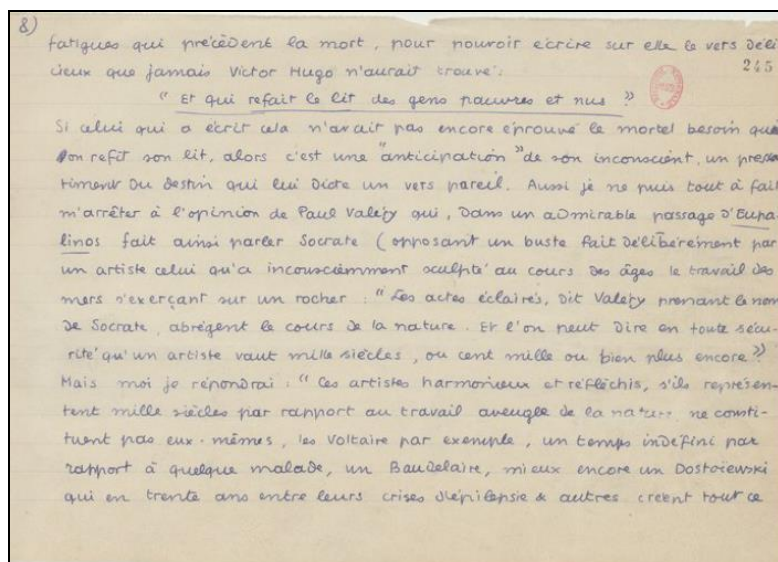 8)
fatigues qui précèdent la mort, pour pouvoir écrire sur elle le vers déli
cieux que jamais Victor Hugo n'aurait trouvé :
245
"Et qui refait le lit des gens pauvres et nus"
Si celui qui a écrit cela n'avait pas encore éprouvé le mortel besoin que
l'on refit son lit, alors c'est une "anticipation" de son inconscient, un pres
timent du destin qui lui dicte un vers pareil. Aussi je ne puis tout à fait
m'arrêter à l'opinion de Paul Valéry qui, dans un admirable passage d'Eupa
linos fait ainsi parler Socrate (opposant un buste fait délibérément par
un artiste celui qu'a inconsciemment sculpté au cours des âges le travail des
mers s'exerçant sur un rocher : "Les actes éclairés, dit Valéry prenant le nom
de Socrate, abrègent le cours de la nature. Et l'on peut dire en toute sécu-
rité qu'un artiste vaut mille siècles, ou cent mille ou bien plus encore"
Mais moi je répondrai : "Ces artistes harmonieux et réfléchis, s'ils représen-
tent mille siècles par rapport au travail aveugle de la nature ne consti-
tuent pas eux-mêmes, les Voltaire par exemple, un temps indéfini par
rapport à quelque malade, un Baudelaire, mieux encore un Dostoiewski
qui en trente ans entre leurs crises d'épilepsie & autres créent tout ce